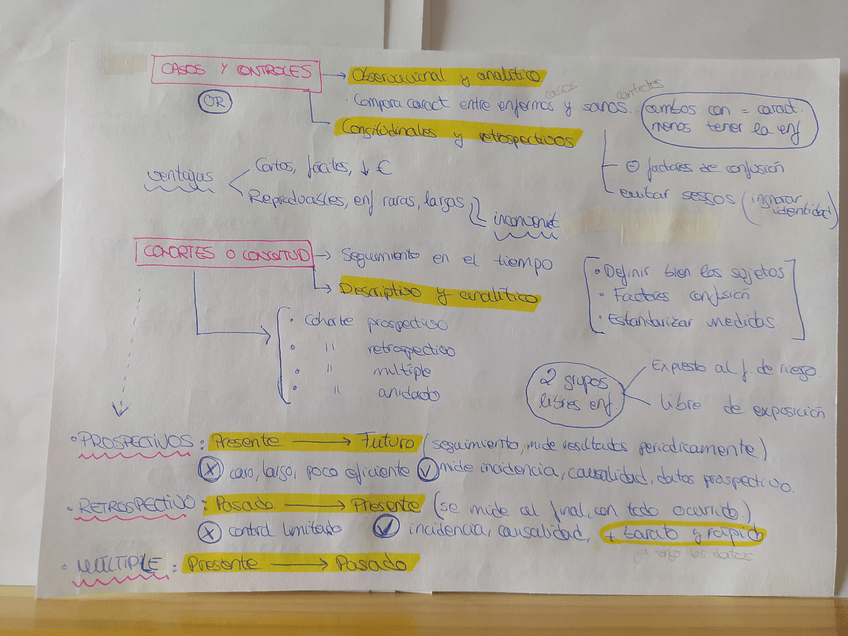 CASOS Y CONTROLES → Observacional y analítico
casos controles
OR
· Compara caract entre enfermos y sanos. (ambos con = caract. menos tener la enf
Longitudinales y retrospectivos
⊖ factores de confusión
evitar sesgos (ignorar identidad)
ventajas < Cortos, fáciles, ↓ €
Reproducibles, enf raras, largas
inconvenient
COHORTES O LONGITUD → Seguimiento en el tiempo
→ Descriptivo y analítico
· Definir bien los sujetos
· Factores confusión
· Estandarizar medidas
· Cohorte prospectivo
· " retrospectivo
· " multiple
· " anidado
2 grupos libres enf
Expuesto al f de riesgo.
Libre de exposición
· PROSPECTIVOS: Presente → Futuro (seguimiento, mide resultados periodicamente)
X caro, largo, poco eficiente ✓ mide incidencia, causalidad, datos prospectivo.
· RETROSPECTIVO: Pasado → Presente (se mide al final, con todo ocurrido)
X control limitado ✓ incidencia, causalidad, + barato y rápido
ya tengo los datos
· MÚLTIPLE: Presente → Pasado